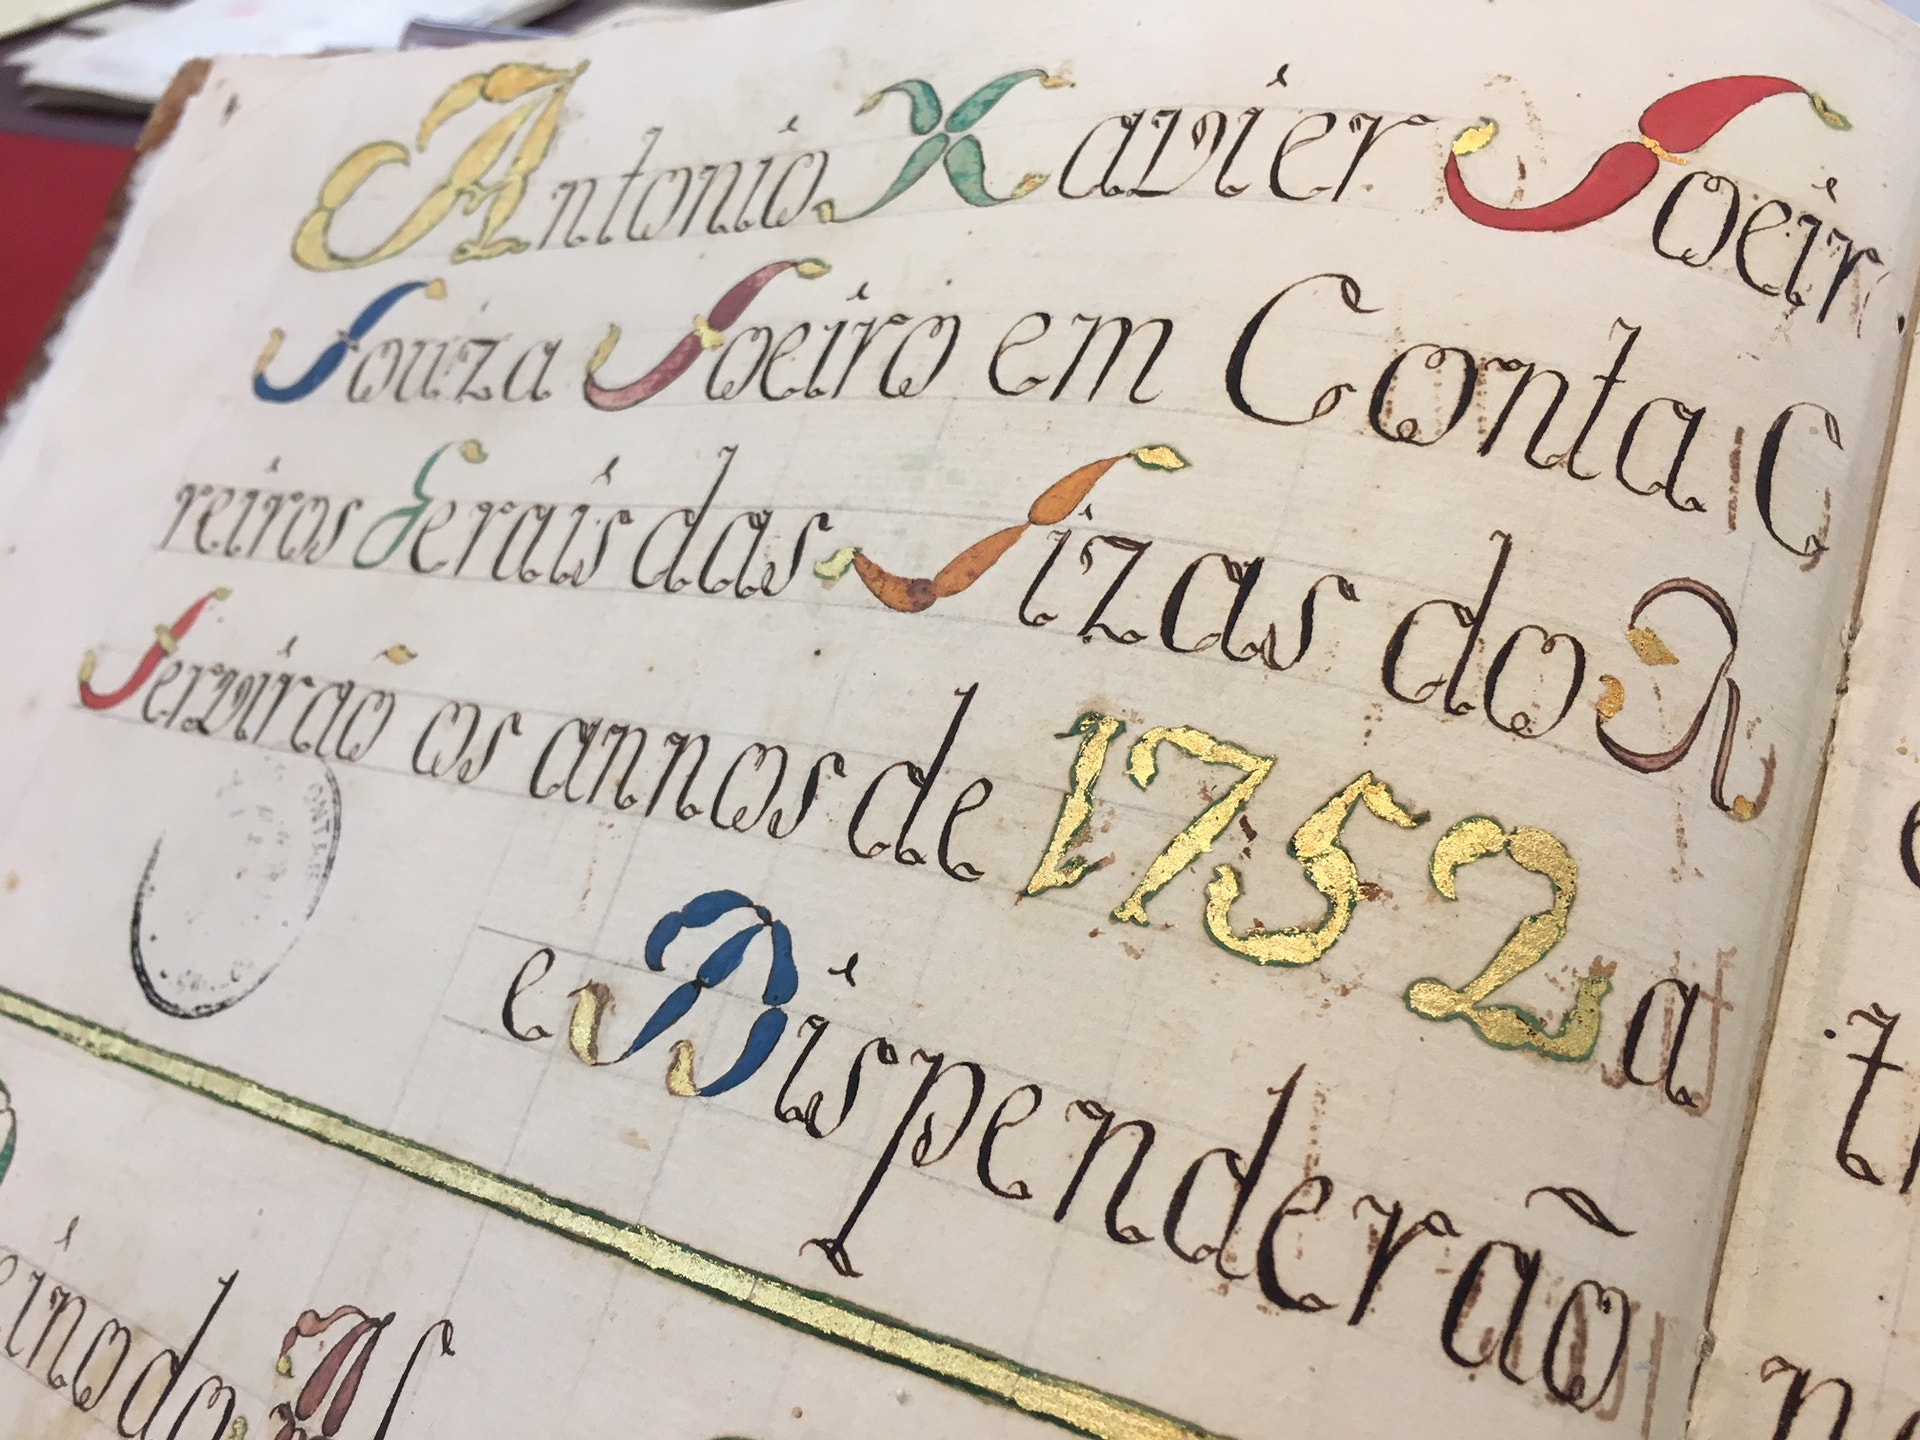 Antonio Xavier Soeir
Souza Soeiro em Conta C
reiros Gerais das Sizas do R
Servirão os annos de 1752 a
e Dispenderão
einodo